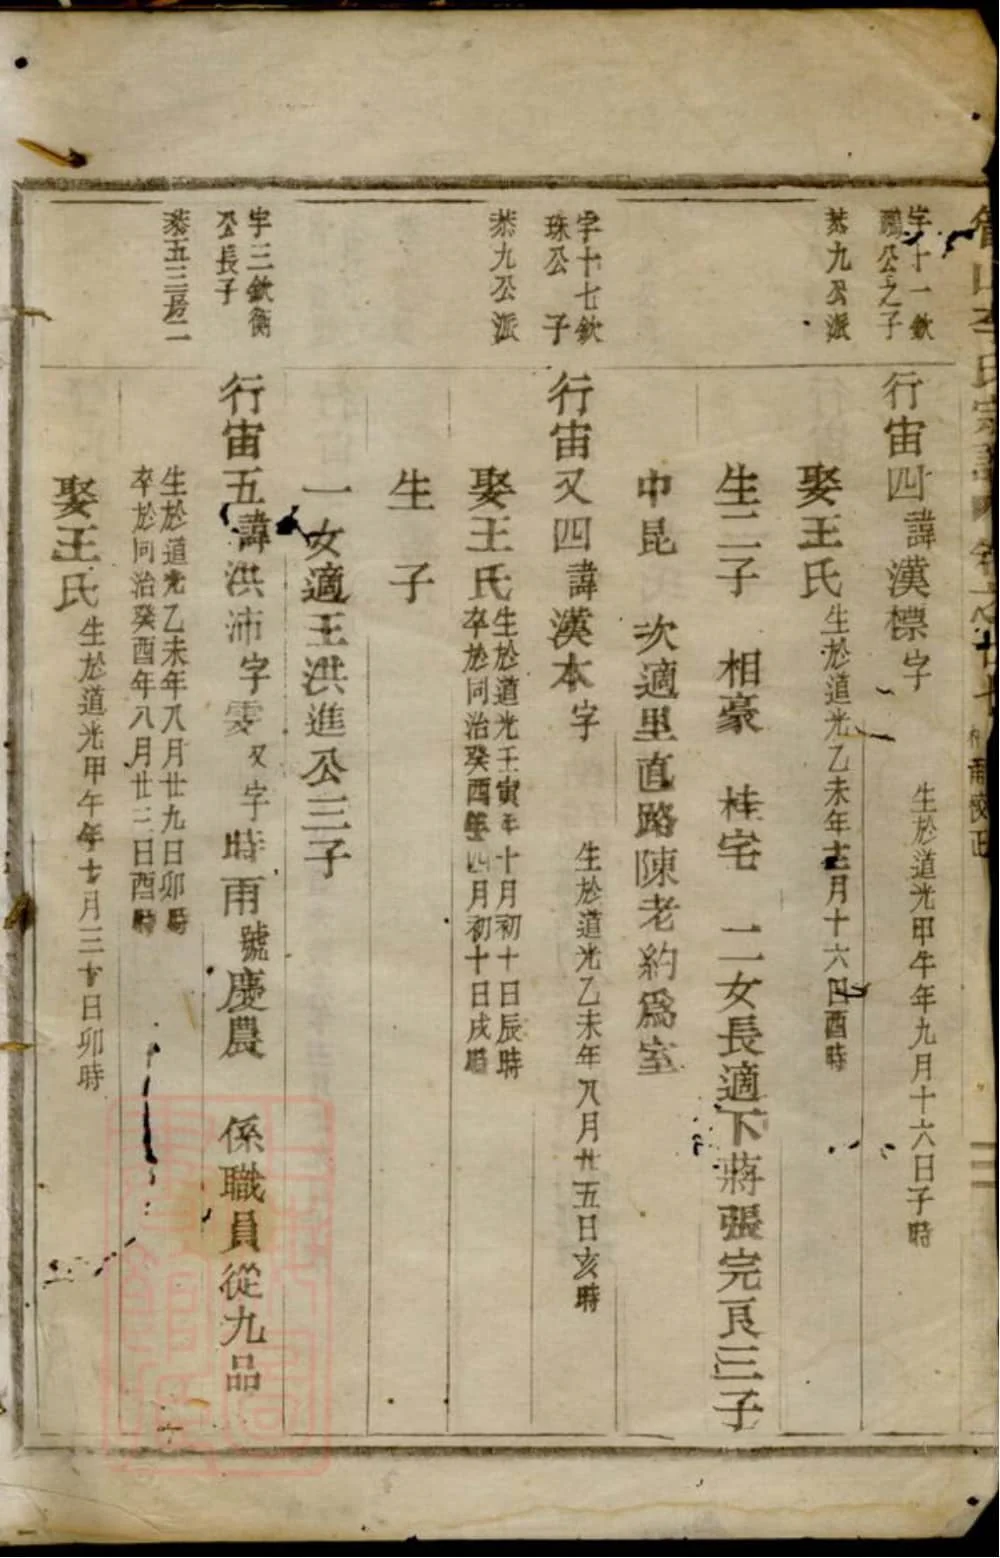 山李氏宗譜 卷之廿七
字十一欽
鵬公之子
恭九公派
行宙四諱漢標字 生於道光甲午年九月十六日子時
娶王氏 生於道光乙未年十二月十六日酉時
生二子 相豪 桂宅 二女長適下蔣張完良三子
中昆 次適里直路陳老約爲室
字十七欽
珠公 子
恭九公派
行宙又四諱漢本字 生於道光乙未年八月廿五日亥時
娶王氏 生於道光壬寅年十月初十日辰時
卒於同治癸酉年四月初十日戌時
生 子
一女適王洪進公三子
字三欽衡
公長子
恭五三房二
行宙五諱洪沛字雯又字時雨號慶農 係職員從九品
生於道光乙未年八月廿九日卯時
卒於同治癸酉年八月廿二日酉時
娶王氏 生於道光甲午年十月三十日卯時